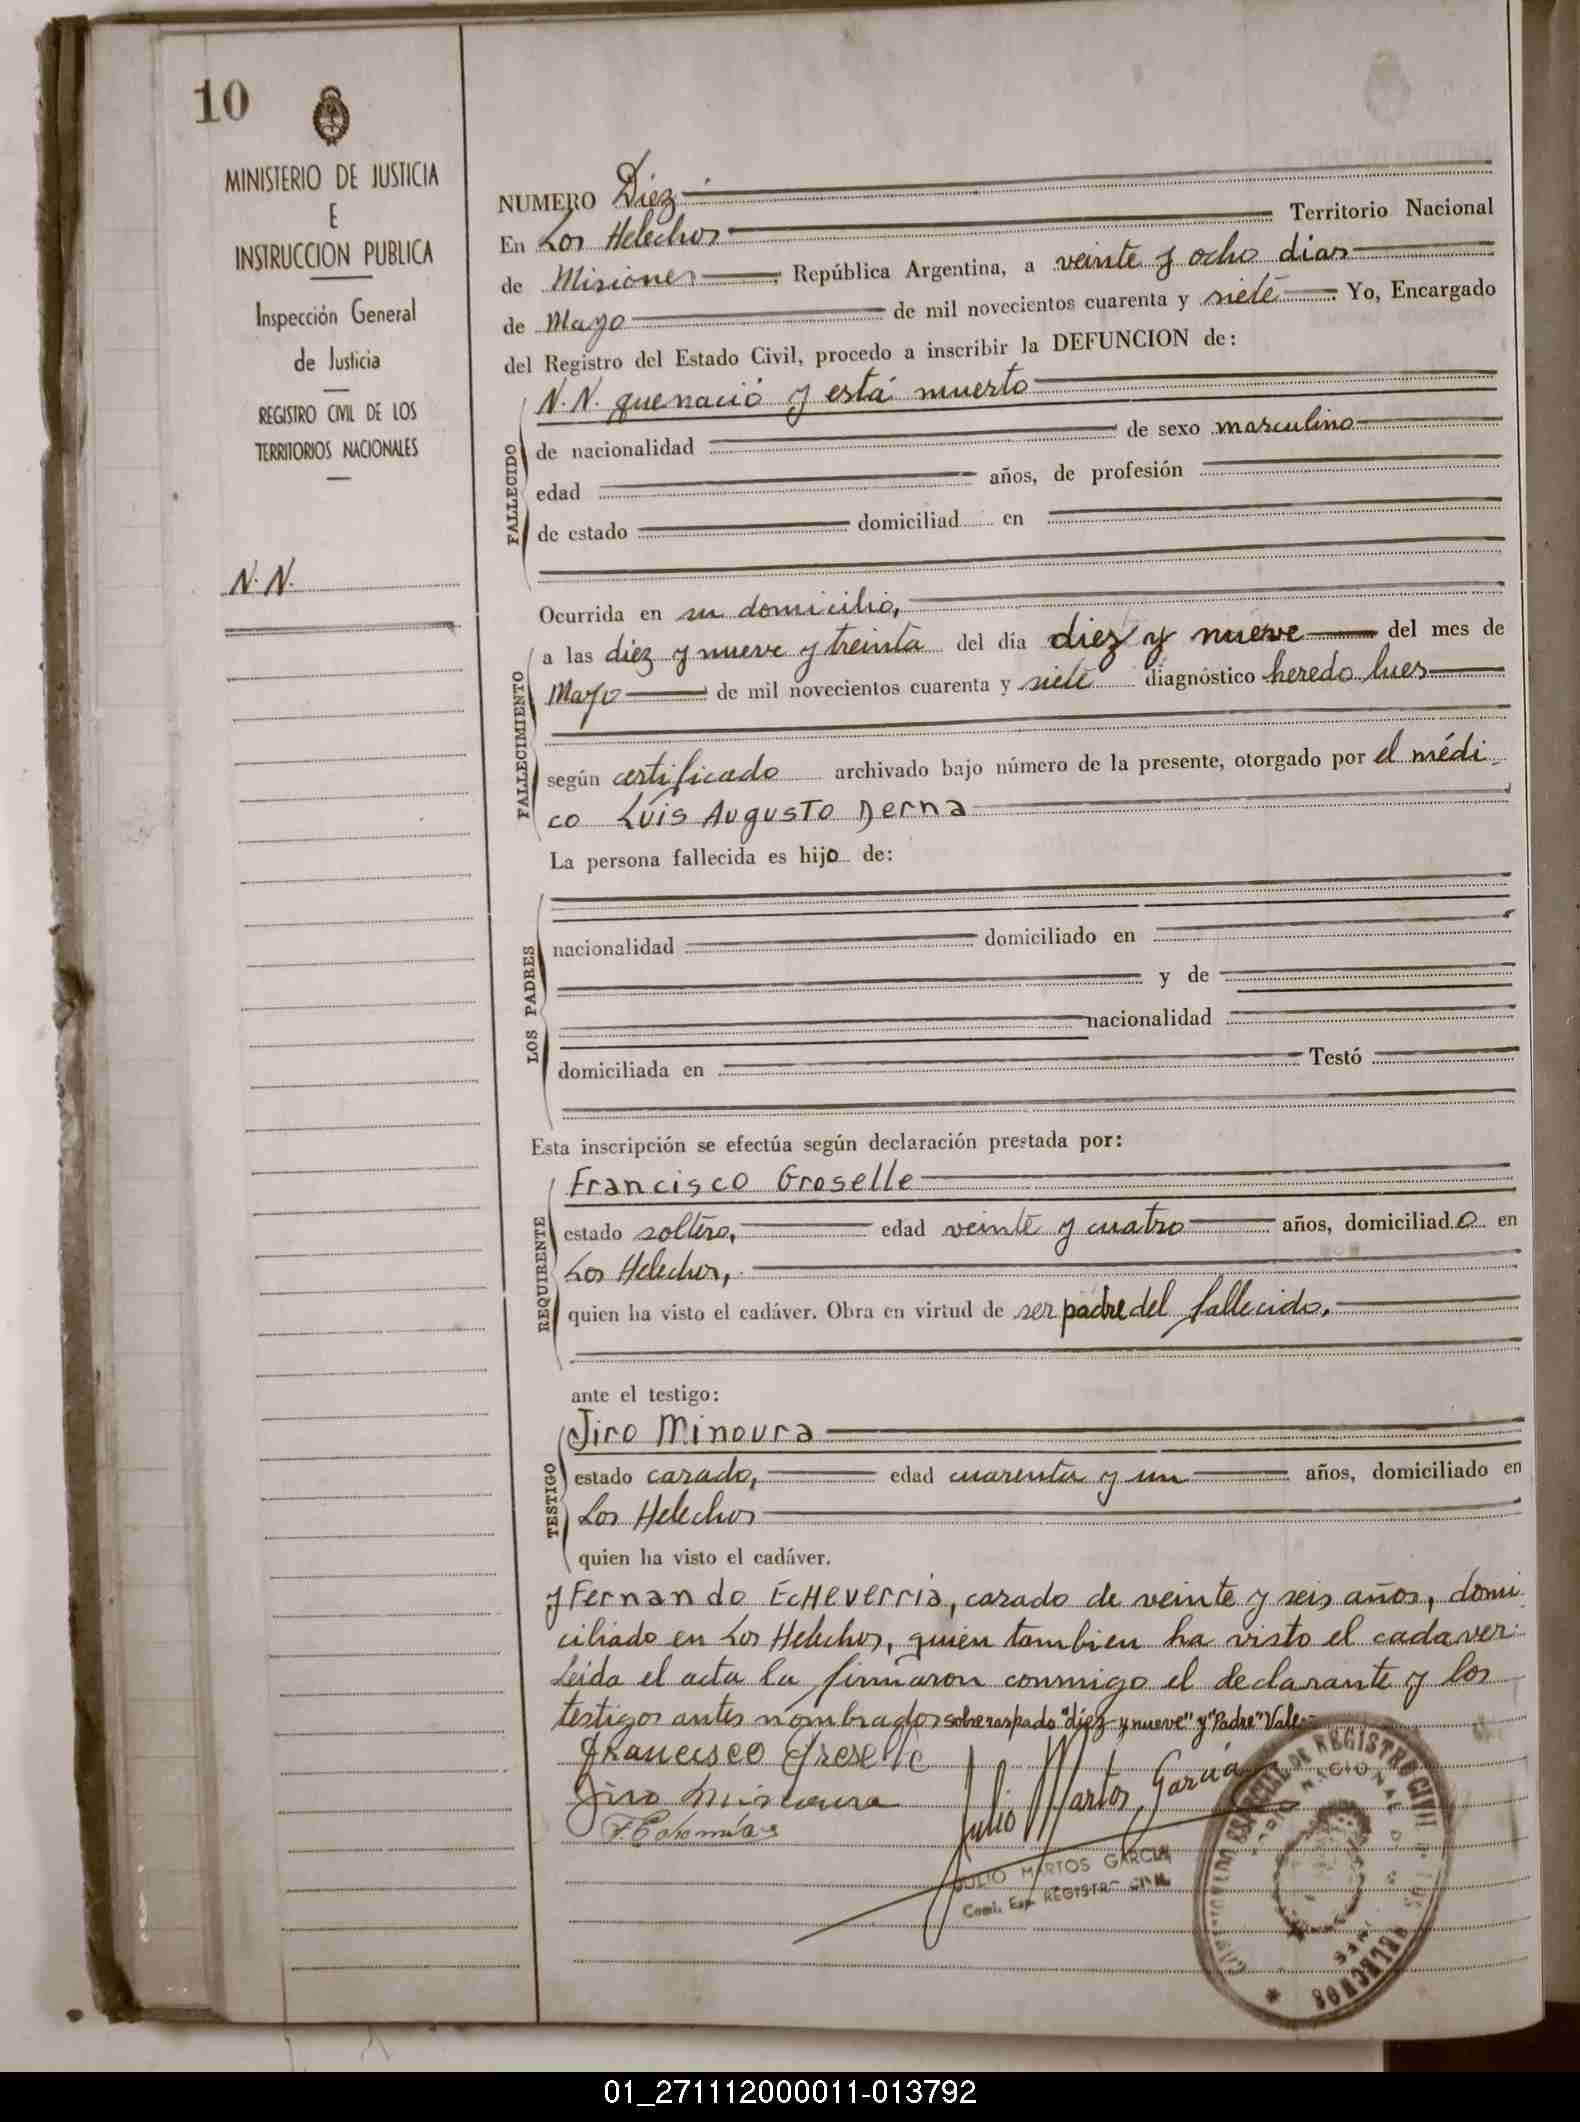 10
MINISTERIO DE JUSTICIA
E
INSTRUCCION PUBLICA
Inspección General
de Justicia
REGISTRO CIVIL DE LOS
TERRITORIOS NACIONALES
N. N.
NUMERO Diez
En Los Helechos Territorio Nacional
de Misiones, República Argentina, a veinte y ocho dias
de Mayo de mil novecientos cuarenta y siete. Yo, Encargado
del Registro del Estado Civil, procedo a inscribir la DEFUNCION de:
FALLECIDO
N. N. que nació y está muerto
de nacionalidad de sexo masculino
edad años, de profesión
de estado domiciliad en
FALLECIMIENTO
Ocurrida en su domicilio,
a las diez y nueve y treinta del día diez y nueve del mes de
Mayo de mil novecientos cuarenta y siete diagnóstico heredo lues
según certificado archivado bajo número de la presente, otorgado por el médi-
co Luis Augusto Derna
La persona fallecida es hijo de:
LOS PADRES
nacionalidad domiciliado en
y de
nacionalidad
domiciliada en Testó
Esta inscripción se efectúa según declaración prestada por:
REQUIRENTE
Francisco Groselle
estado soltero, edad veinte y cuatro años, domiciliado en
Los Helechos,
quien ha visto el cadáver. Obra en virtud de ser padre del fallecido.
ante el testigo:
TESTIGO
Jiro Minoura
estado casado, edad cuarenta y un años, domiciliado en
Los Helechos
quien ha visto el cadáver.
y Fernando Echeverria, casado de veinte y seis años, domi-
ciliado en Los Helechos, quien tambien ha visto el cadaver.
Leida el acta la firmaron conmigo el declarante y los
testigos antes nombrados sobreraspado "diez y nueve" y "Padre" Vale
Francisco
Jiro Minoura
Julio Martos Garcia
JULIO MARTOS GARCIA
REGISTRO CIVIL
DE REGISTRO CIVIL
HELECHOS
01_271112000011-013792